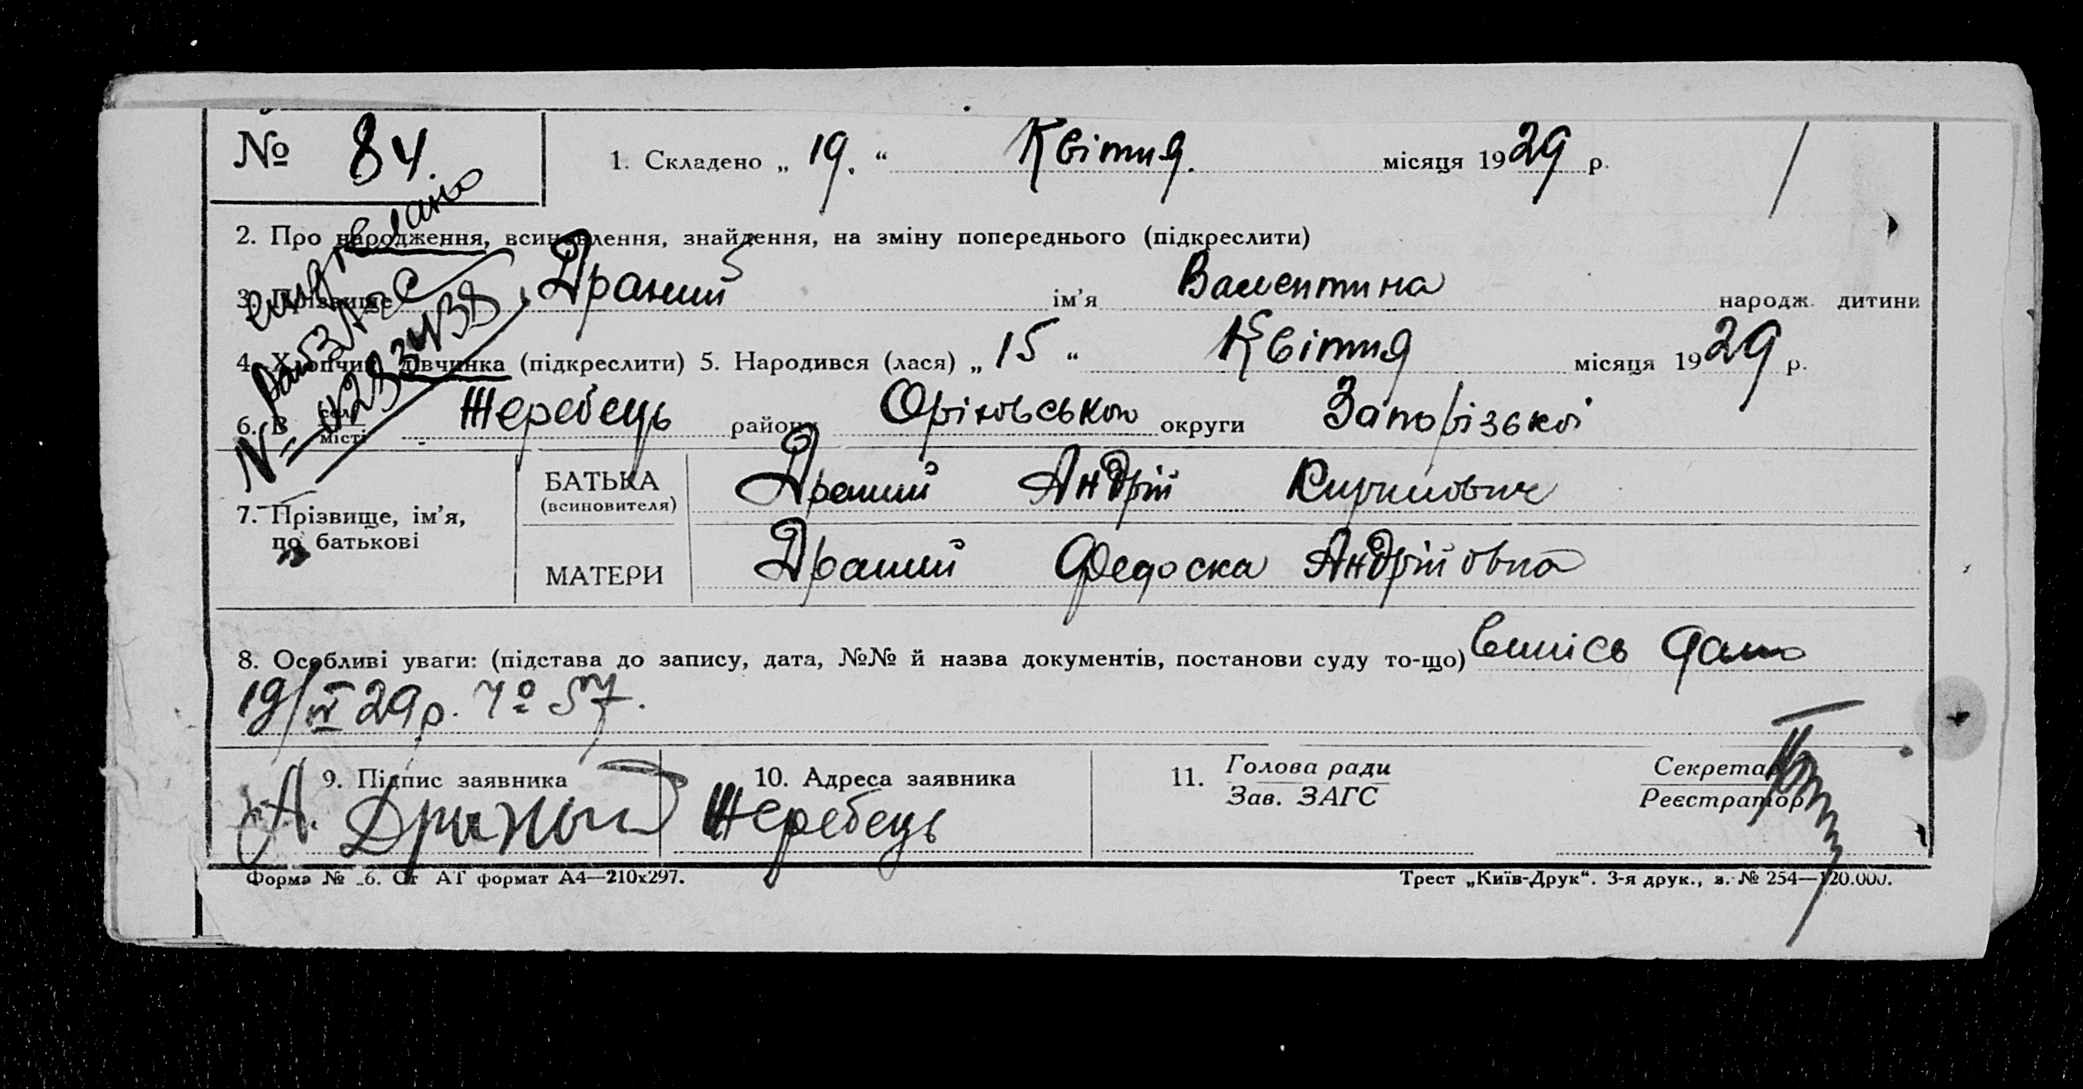 № 84.
1. Складено „ 19. “ Квітня. місяця 1929 р.
2. Про народження, всиновлення, знайдення, на зміну попереднього (підкреслити)
3. Прізвище Драний ім’я Валентина народж. дитини
4. Хлопчик, дівчинка (підкреслити) 5. Народився (лася) „ 15 “ Квітня місяця 1929 р.
6. В селі місті Жеребець району Оріховського округи Запорізької
7. Прізвище, ім’я, по батькові
БАТЬКА (всиновителя) Драний Андрій Кирилович
МАТЕРИ Драний Федоска Андрійовна
8. Особливі уваги: (підстава до запису, дата, №№ й назва документів, постанови суду то-що) Випісь дано
19/IV 29 р. № 57.
9. Підпис заявника
А. Драный
10. Адреса заявника
Жеребець
11. Голова ради
Зав. ЗАГС
Секретар
Реєстратор
Форма № 6. Ст АТ формат А4—210х297.
Трест „Київ-Друк“. 3-я друк., з. № 254—120.000.